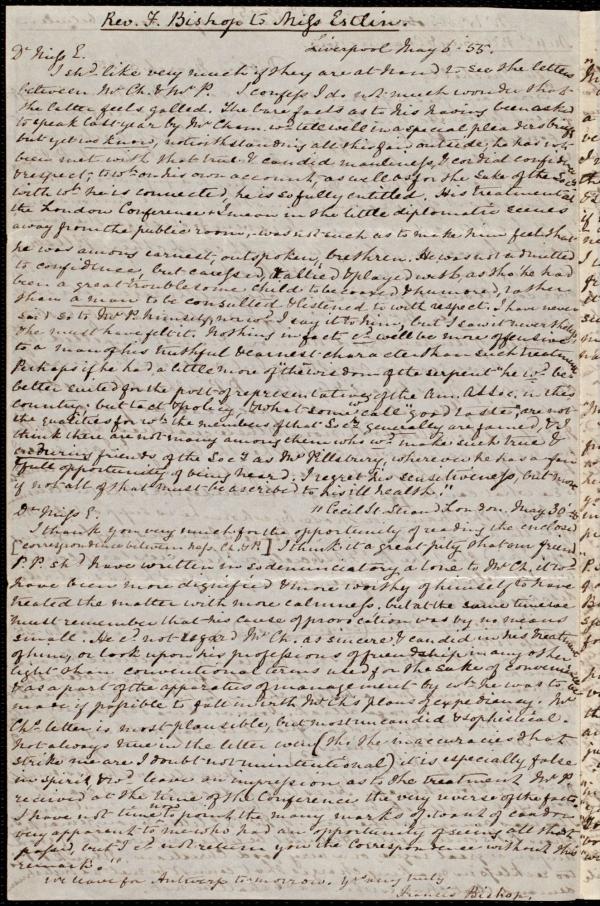 Rev. F. Bishop to Miss Estlin.
Liverpool May 6 - 55.
Dr Miss E.
I shd. like very much if they are at hand to see the letters
between Mr Ch. & Mr P. I confess I do not much wonder that
the latter feels galled. The bare facts as to his having been asked
to speak last year by Mr Cham. wd. tell well in a special pleader's brief
but yet we know, notwithstanding all this fair outside, he has not
been met with that true & candid manliness, & cordial confidence
& respect, to wh. on his own account, as well as for the sake of the Socy.
with wh. he is connected, he is so fully entitled. His treatment at
the London Conference & I mean in the little diplomatic scenes
away from the public room, was not such as to make him feel that
he was among earnest, outspoken, brethren. He was not admitted
to confidence, but caressed, & played with, as tho he had
been a great troublesome child to be coaxed & humored, rather
than a man to be consulted & listened to with respect. I have never
said so to Mr P. himself, nor wd. I say it to him, but I saw it nevertheless
& he must have felt it. Nothing in fact cd. well be more offensive
to a man of his truthful & earnest character than such treatment.
Perhaps if he had a little more of the wisdom of the serpent "he wd. be
better suited for the post of representative of the Am. As. Soc. in this
country, but tact & policy, & what some call "good taste", are not
the qualities for wh. the members of that Socy. generally are famed, & I
think there are not many among them who wd. make such true &
enduring friends of the Socy. as Mr Pillsbury, wherever he has a fair
& full opportunity of being heard. I regret his sensitiveness, but most
if not all of that must be ascribed to his ill health."
"Cecil St. Strand London. May 30
Dr Miss E.
I thank you very much for the opportunity of reading the enclosed
["correspondence between Mess. Ch. & P.] I think it a great pity that our friend
P.P. shd. have written in so denunciatory a tone to Mr Ch., it wd.
have been more dignified & more worthy of himself to have
treated the matter with more calmness, but at the same time we
must remember that his cause of provocation was by no means
small. He cd. not regard Mr Ch. as sincere & candid in his treatment
of him, or look upon his professions of friendship in any other
light than conventional terms used for the sake of convenience
& as a part of the apparatus of management by wh. he was to be
made if possible to fall in with Mr Ch's plans of expediency. Mr
Ch's letter is most plausible, but most uncandid & sophistical.
Not always true in the letter even (tho. the inaccuracies that
strike me are I doubt not unintentional) it is especially false
in spirit, & wd. leave an impression as to the treatment Mr P.
received at the time of the Conference the very reverse of the facts.
I have not time now to point the many marks of want of candor
very apparent to me who had an opportunity of seeing all that
passed, but I cd. not return you the Correspondence without this
remark."
We leave for Antwerp tomorrow. Yrs very truly
Francis Bishop.